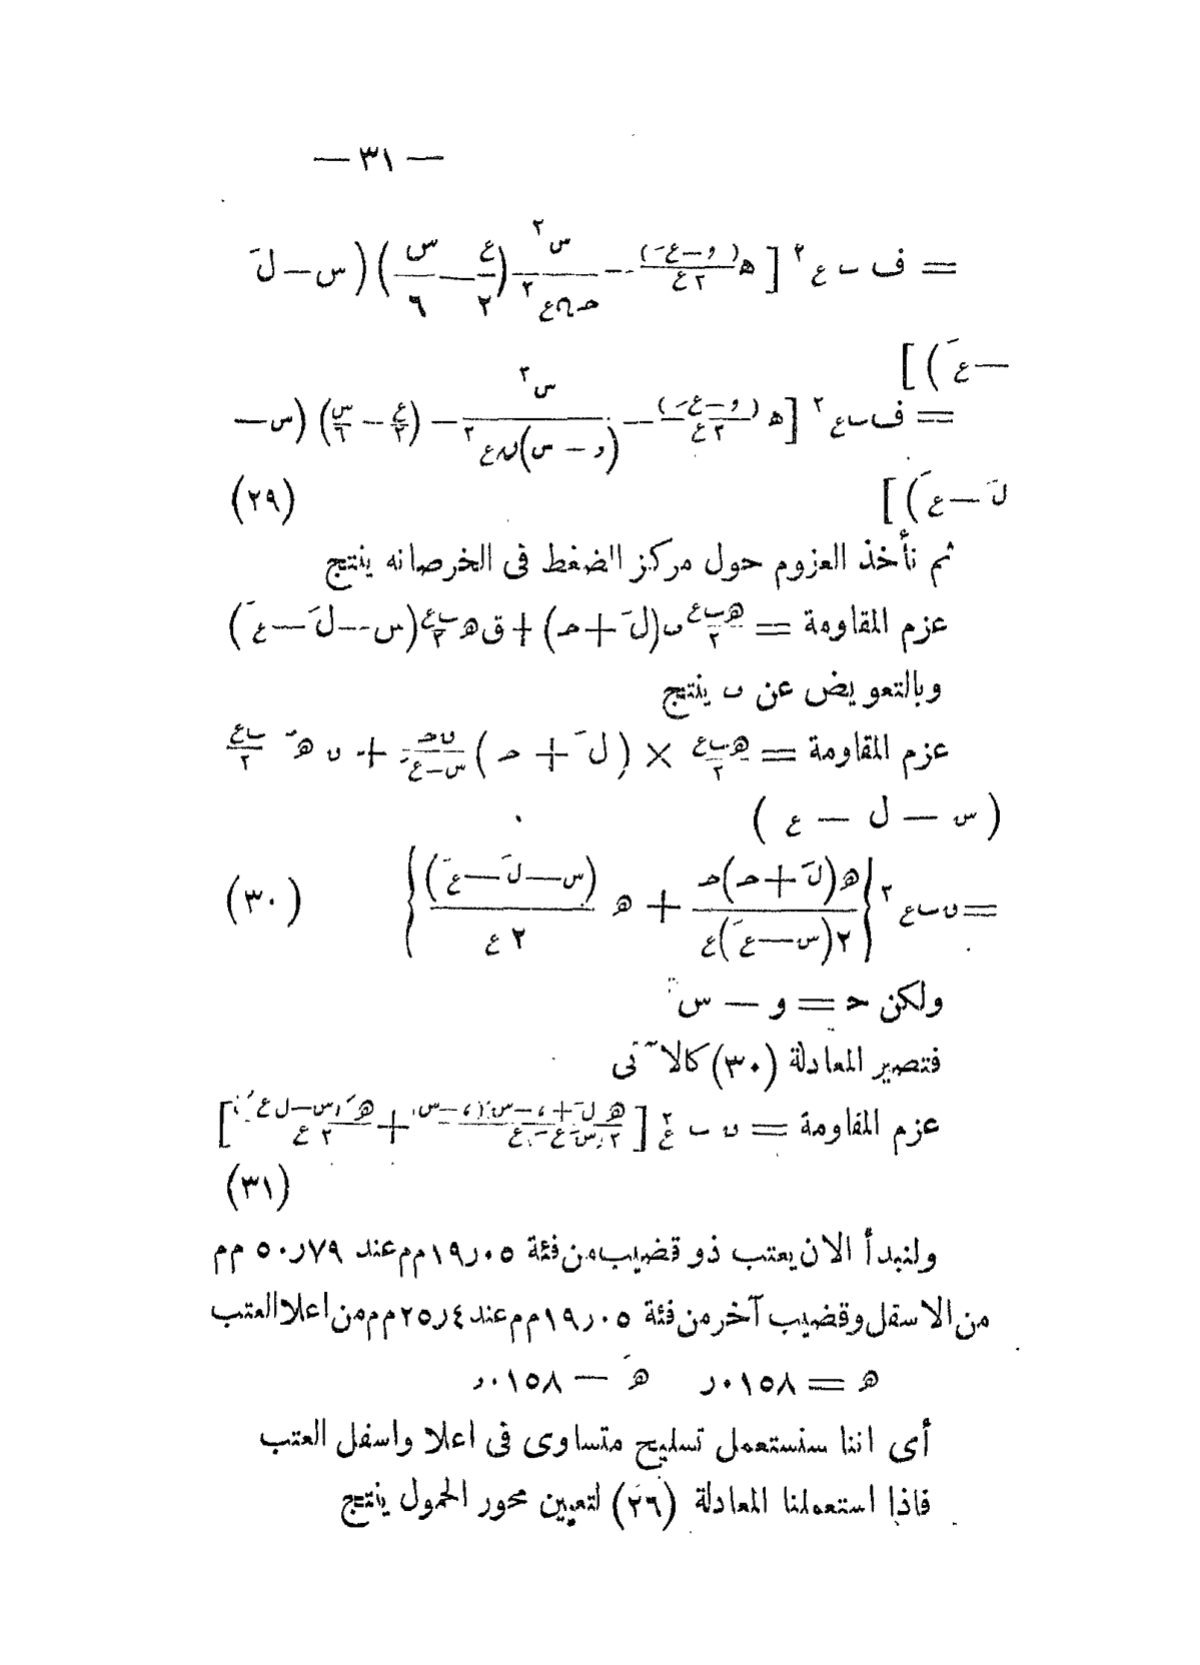 — ٣١ —
= ف ب ع٢ [ هـ (و — عَ)/٢ع — س٢/حـ ن ع٢ (ع/٢ — س/٦) (س — لَ
— عَ) ]
= ف ب ع٢ [ هـ (و — عَ)/٢ع — س٢/(و — س) ن ع٢ — (ع/٢ — س/٦) (س —
لَ — عَ) ] (٢٩)
ثم نأخذ العزوم حول مركز الضغط فى الخرصانه ينتج
عزم المقاومة = هـ ب ع/٢ ں (لَ + حـ) + ق هـ ب ع/٢ (س — لَ — عَ)
وبالتعويض عن ں ينتج
عزم المقاومة = هـ ب ع/٢ × (لَ + حـ) ں حـ/س — عَ + ں هـَ ب ع/٢
(س — ل — ع)
= ں ب ع٢ { هـ (لَ + حـ) حـ/٢ (س — عَ) ع + هـ (س — لَ — عَ)/٢ ع } (٣٠)
ولكن حـ = و — س
فتصير المعادلة (٣٠) كالآتى
عزم المقاومة = ں ب ع٢ [
(٣١)
ولنبدأ الان بعتب ذو قضيب من فئة ١٩٫٠٥ مم عند ٥٠٫٧٩ مم
من الاسفل وقضيب آخر من فئة ١٩٫٠٥ مم عند ٢٥٫٤ مم من اعلا العتب
هـ = ٫٠١٥٨ هـَ — ٫٠١٥٨
أى اننا سنستعمل تسليح متساوى فى اعلا واسفل العتب
فاذا استعملنا المعادلة (٢٦) لتعيين محور الخمول ينتج